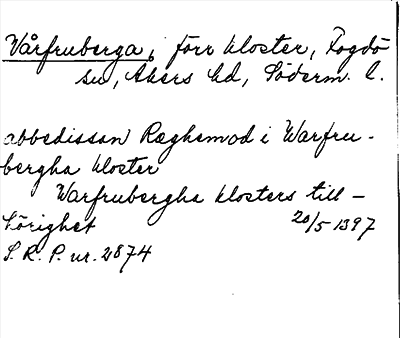 Vårfruberga, förr kloster, Fogdö
sn, Åkers hd, Söderm. l.
abbedissan Ræghemod i Warfru-
bergha kloster
Warfrubergha klosters till-
hörighet 20/5 1397
S.R.P. nr. 2874